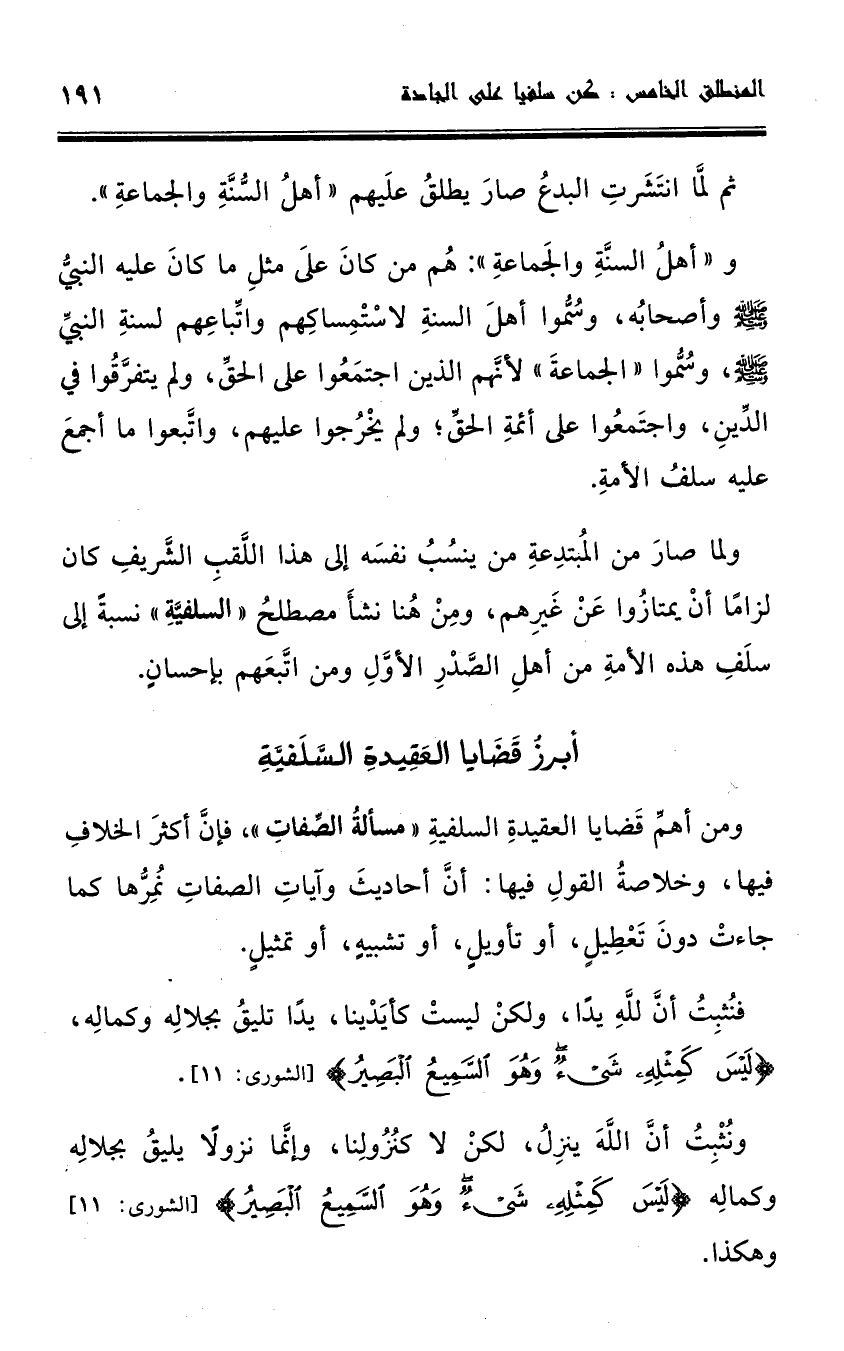 المنطلق الخامس : كن سلفيا على الجادة ١٩١
ثم لمَّا انتَشَرتِ البدعُ صارَ يطلقُ علَيهم «أهلُ السُّنَّةِ والجماعةِ».
و «أهلُ السنَّةِ والجَماعةِ»: هُم من كانَ علَى مثلِ ما كانَ عليه النبيُّ
ﷺ وأصحابُه، وسُمُّوا أهلَ السنةِ لاسْتْمِساكِهم واتِّباعِهم لسنةِ النبيِّ
ﷺ، وسُمُّوا «الجماعةَ» لأنَّهم الذين اجتمَعُوا على الحقِّ، ولم يتفرَّقُوا في
الدِّينِ، واجتَمعُوا على أئمةِ الحقِّ؛ ولم يخْرُجوا عليهم، واتَّبعوا ما أجمعَ
عليه سلفُ الأمةِ.
ولما صارَ من المُبتدِعةِ من ينسُبُ نفسَه إلى هذا اللَّقبِ الشَّريفِ كان
لزامًا أنْ يمتازُوا عَنْ غَيرِهم، ومِنْ هُنا نشأَ مصطلحُ «السلفيَّةِ» نسبةً إلى
سلَفِ هذه الأمةِ من أهلِ الصَّدْرِ الأوَّلِ ومن اتَّبعَهم بإحسانٍ.
أبرزُ قَضَايا العَقِيدةِ السَّلَفيَّةِ
ومن أهمِّ قَضايا العقيدةِ السلفيةِ «مسألةُ الصِّفاتِ»، فإنَّ أكثرَ الخلافِ
فيها، وخلاصةُ القولِ فيها: أنَّ أحاديثَ وآياتِ الصفاتِ نُمِرُّها كما
جاءتْ دونَ تَعْطِيلٍ، أو تأويلٍ، أو تشبيهٍ، أو تمثيلٍ.
فنُثبِتُ أنَّ للَّهِ يدًا، ولكنْ ليستْ كأيَدْينا، يدًا تليقُ بجلالِه وكمالِه،
﴿لَيْسَ كَمِثْلِهِۦ شَىْءٌۖ وَهُوَ ٱلسَّمِيعُ ٱلْبَصِيرُ﴾ [الشورى: ١١].
ونُثْبِتُ أنَّ اللَّهَ ينزِلُ، لكنْ لا كنُزُولِنا، وإنَّما نزولًا يليقُ بجلالِه
وكمالِه ﴿لَيْسَ كَمِثْلِهِۦ شَىْءٌۖ وَهُوَ ٱلسَّمِيعُ ٱلْبَصِيرُ﴾ [الشورى: ١١]
وهكذا.